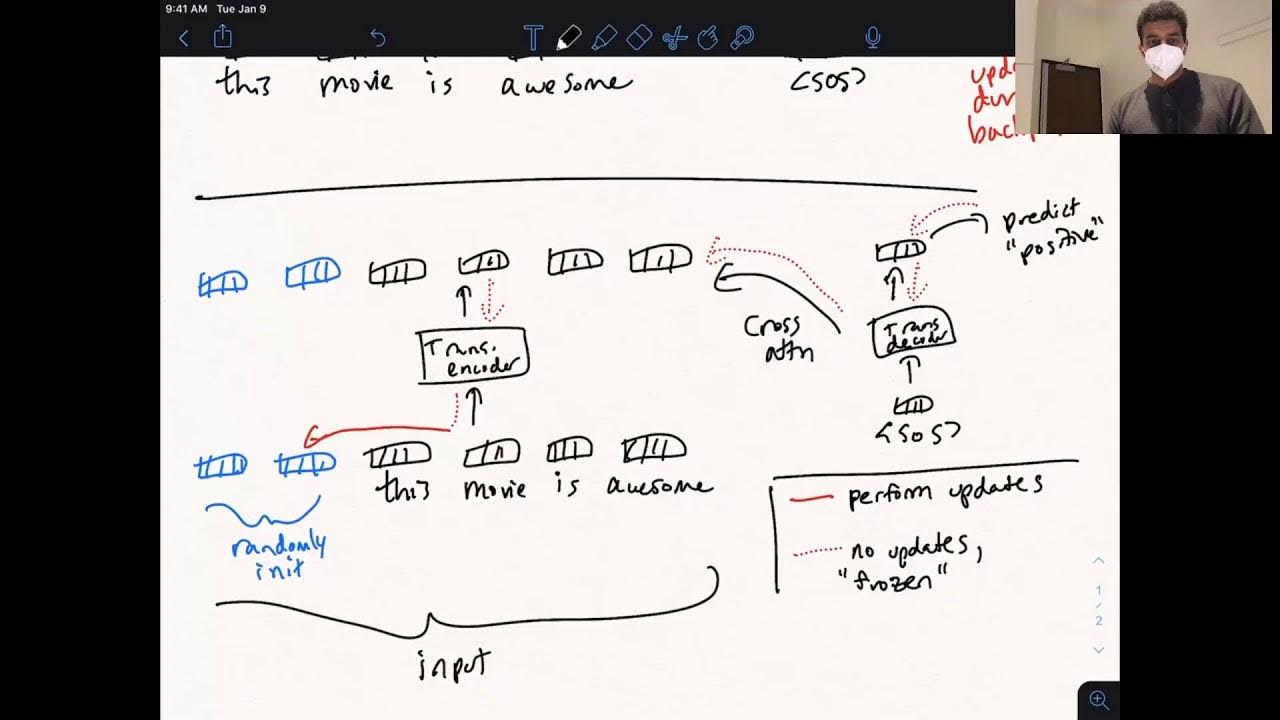 9:41 AM Tue Jan 9
T
this movie is awesome <SOS>
upd
dur
back
predict
"positive"
Trans.
encoder
Cross
attn
Trans
decoder
<SOS>
this movie is awesome
randomly
init
input
perform updates
no updates,
"frozen"
1
/
2